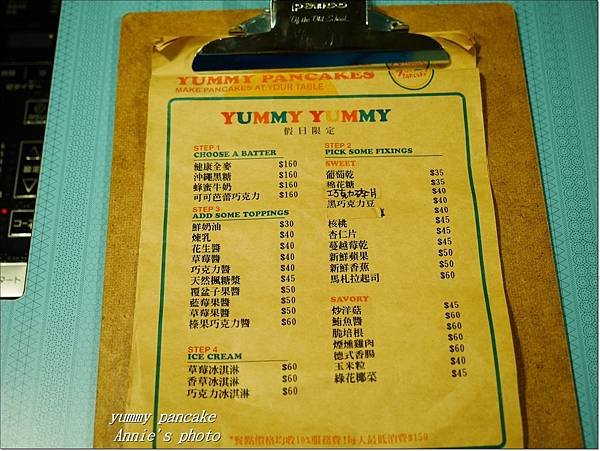 Of the Old School
YUMMY PANCAKES
MAKE PANCAKES AT YOUR TABLE
YUMMY YUMMY
假日限定
STEP 1
CHOOSE A BATTER
健康全麥 $160
沖繩黑糖 $160
蜂蜜牛奶 $160
可可芭蕾巧克力 $160
STEP 3
ADD SOME TOPPINGS
鮮奶油 $30
煉乳 $40
花生醬 $40
草莓醬 $40
巧克力醬 $40
天然楓糖漿 $45
覆盆子果醬 $50
藍莓果醬 $50
草莓果醬 $50
榛果巧克力醬 $60
STEP 4
ICE CREAM
草莓冰淇淋 $60
香草冰淇淋 $60
巧克力冰淇淋 $60
STEP 2
PICK SOME FIXINGS
SWEET
葡萄乾 $35
棉花糖 $35
巧克力碎片 $40
黑巧克力豆 $40
核桃 $40
杏仁片 $45
蔓越莓乾 $45
新鮮蘋果 $50
新鮮香蕉 $50
馬札拉起司 $60
SAVORY
炒洋菇 $45
鮪魚醬 $50
脆培根 $60
煙燻雞肉 $60
德式香腸 $60
玉米粒 $40
綠花椰菜 $45
*餐點價格均收10%服務費!每人最低消費$150
yummy pancake
Annie's photo